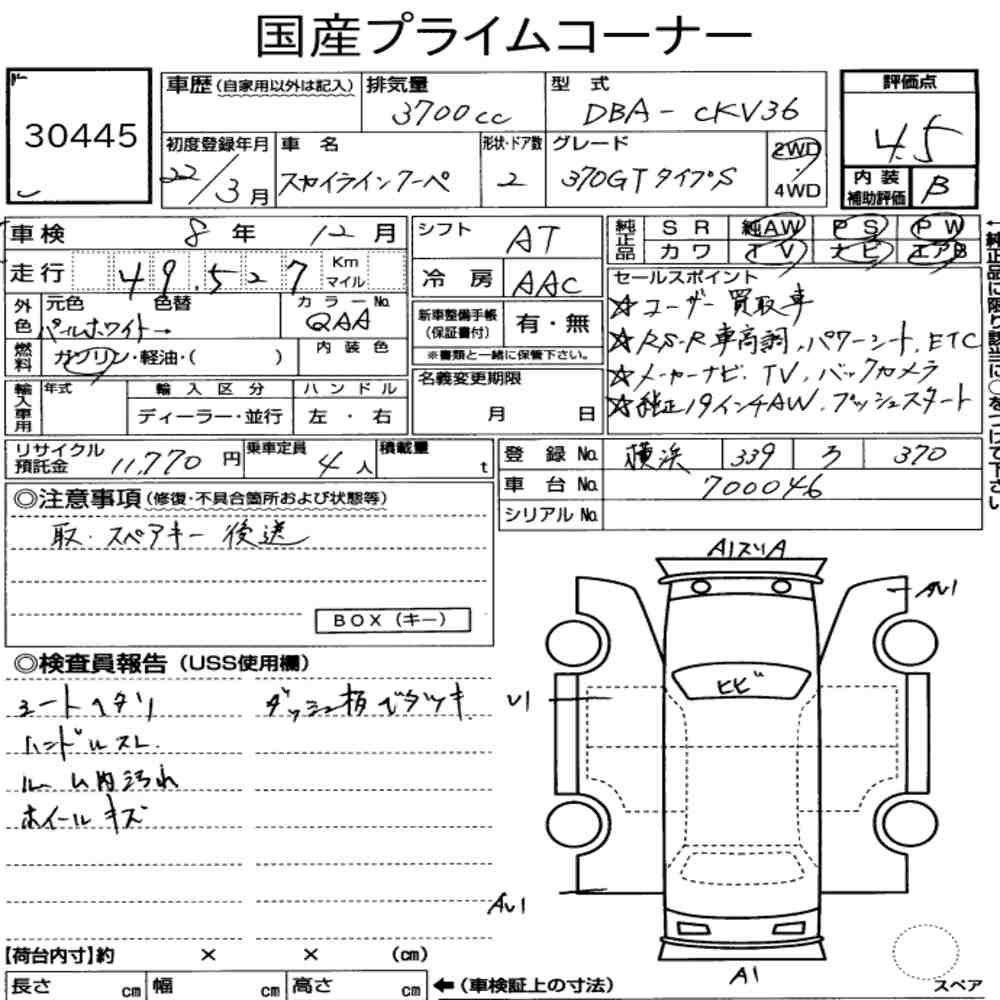 国産プライムコーナー
30445
車歴 (自家用以外は記入)
排気量
3700cc
型式
DBA-CKV36
評価点
4.5
初度登録年月
22/3月
車名
スカイラインクーペ
形状・ドア数
2
グレード
370GTタイプS
2WD
・
4WD
内装
補助評価
B
車検 8年 12月
走行 49,527 Km
マイル
シフト AT
冷房 AAC
純正品
SR 純AW PS PW
カワ TV ナビ エアB
←純正品に限り該当に○をつけて下さい
外色
元色 色替
パールホワイト→
カラーNo.
QAA
燃料
ガソリン・軽油・( )
内装色
新車整備手帳
(保証書付)
有・無
※書類と一緒に保管下さい。
セールスポイント
☆ユーザー買取車
☆RS-R車高調、パワーシート、ETC
☆メーカーナビ、TV、バックカメラ
☆純正19インチAW、プッシュスタート
輸入車用
年式
輸入区分
ディーラー・並行
ハンドル
左・右
名義変更期限
月 日
リサイクル
預託金 11,770円
乗車定員
4人
積載量
t
登録No. 横浜 339 ろ 370
車台No. 700046
シリアルNo.
◎注意事項 (修復・不具合箇所および状態等)
取・スペアキー 後送
BOX(キー)
◎検査員報告 (USS使用欄)
シートヘタリ
ダッシュ板ベタツキ
ハンドルスレ
ルーム内汚れ
ホイールキズ
A1スリA
AU1
U1
ヒビ
AU1
A1
スペア
【荷台内寸】約 × × (cm)
長さ cm 幅 cm 高さ cm ←(車検証上の寸法)